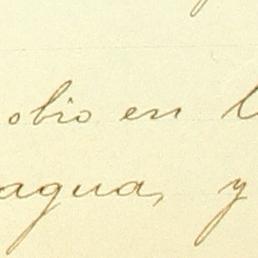 obio en l
agua, y